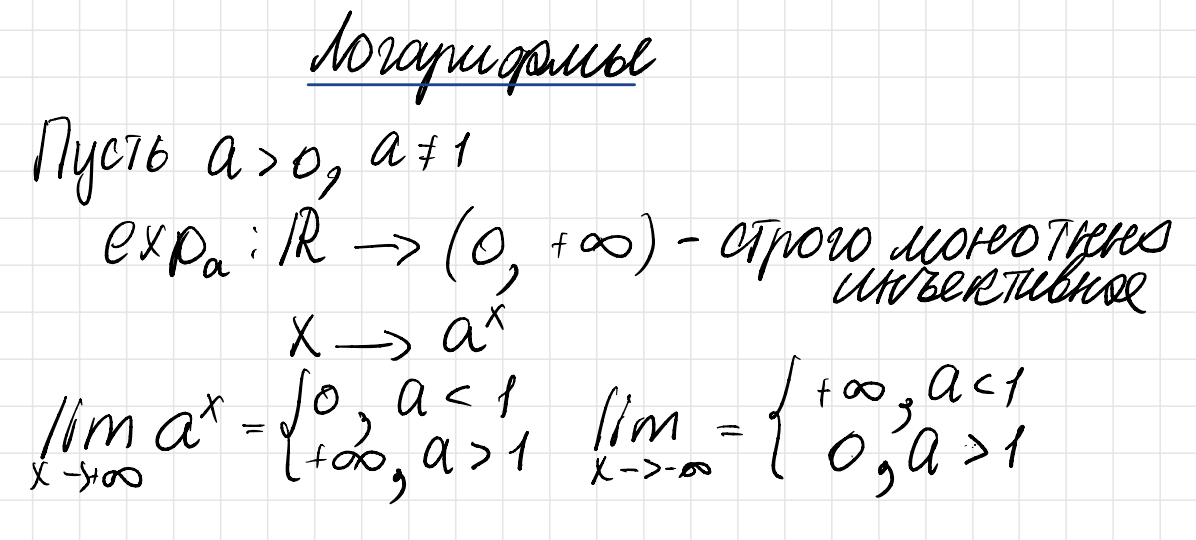 Логарифмы
Пусть a > 0, a ≠ 1
exp_a : ℝ → (0, +∞) - строго монотонно
инъективное
x → a^x
lim_{x→+∞} a^x = { 0, a < 1; +∞, a > 1   lim_{x→-∞} = { +∞, a < 1; 0, a > 1